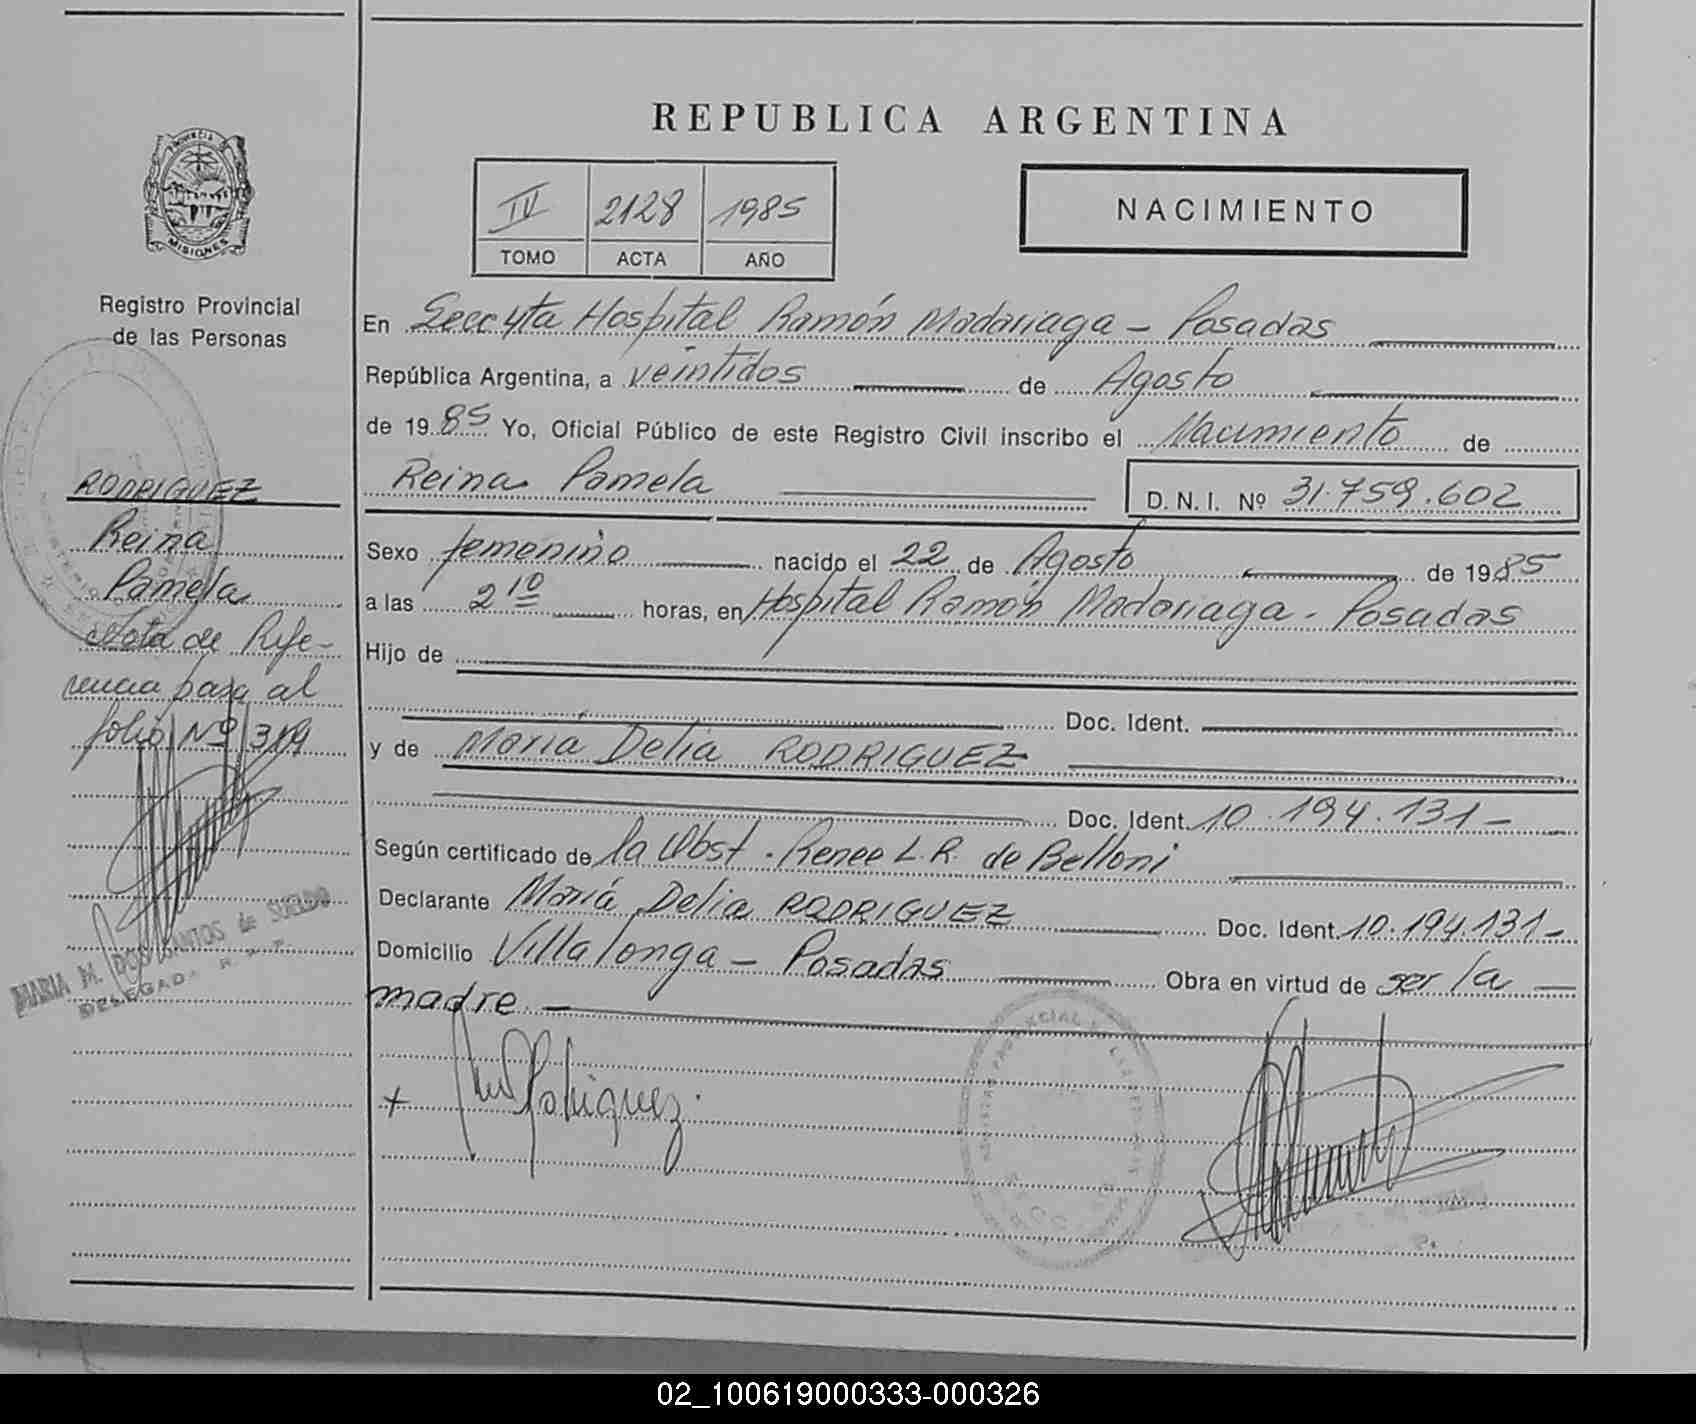 REPUBLICA ARGENTINA
PROVINCIA
MISIONES
IV 2128 1985
TOMO ACTA AÑO
NACIMIENTO
Registro Provincial
de las Personas
RODRIGUEZ
Reina
Pamela
Nota de Refe-
rencia pasa al
folio Nº 319
MARIA M. DOS SANTOS de SUELDO
DELEGADA R. P. P.
En Secc 4ta Hospital Ramón Madariaga - Posadas
República Argentina, a veintidos de Agosto
de 1985 Yo, Oficial Público de este Registro Civil inscribo el Nacimiento de
Reina Pamela D. N. I. Nº 31.759.602
Sexo femenino nacido el 22 de Agosto de 1985
a las 2 10 horas, en Hospital Ramón Madariaga - Posadas
Hijo de
Doc. Ident.
y de María Delia RODRIGUEZ
Doc. Ident. 10.194.131-
Según certificado de la Obst. Renee L.R. de Belloni
Declarante María Delia RODRIGUEZ Doc. Ident. 10.194.131-
Domicilio Villalonga - Posadas Obra en virtud de ser la
madre.
+ Rodriguez.
02_100619000333-000326